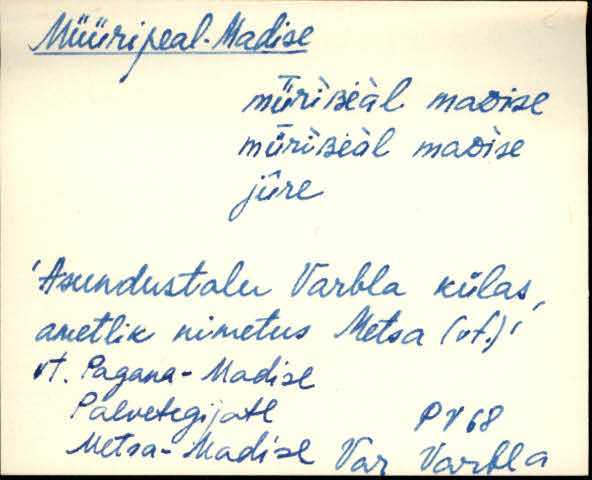 Müüripeal-Madise
mǖriʙeàl maᴅise
mǖriʙeàl maᴅise
jū̬re
'Asundustalu Varbla külas,
ametlik nimetus Metsa (vt.)'
vt. Pagana-Madise
Palvetegijate PV 68
Metsa-Madise Var Varbla